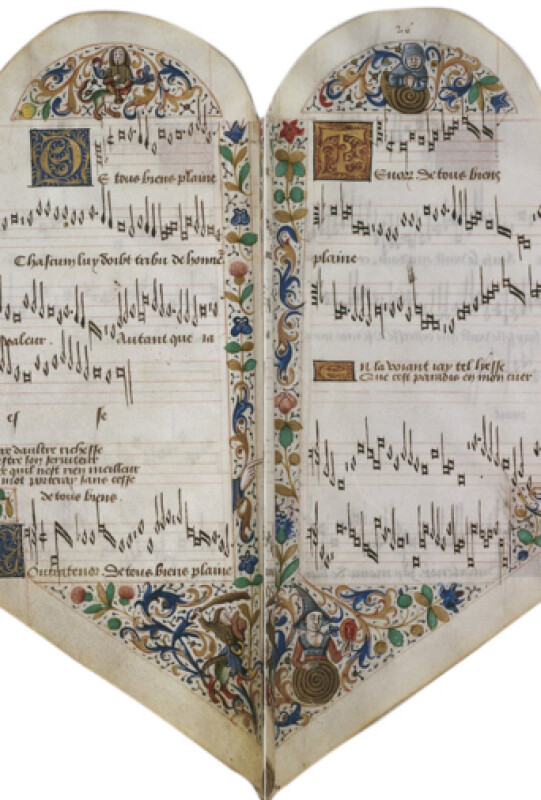 De tous biens plaine
Chascun luy doibt tribu de honne
valeur . Autant que ia
es se
re daultre richesse
stre son serviteur
quil nest rien meilleur
mot porteray sans cesse
de tous biens .
De tous biens plaine
26
Tenor De tous biens
plaine
En la voiant iay tel liesse
Que cest paradis en mon cuer